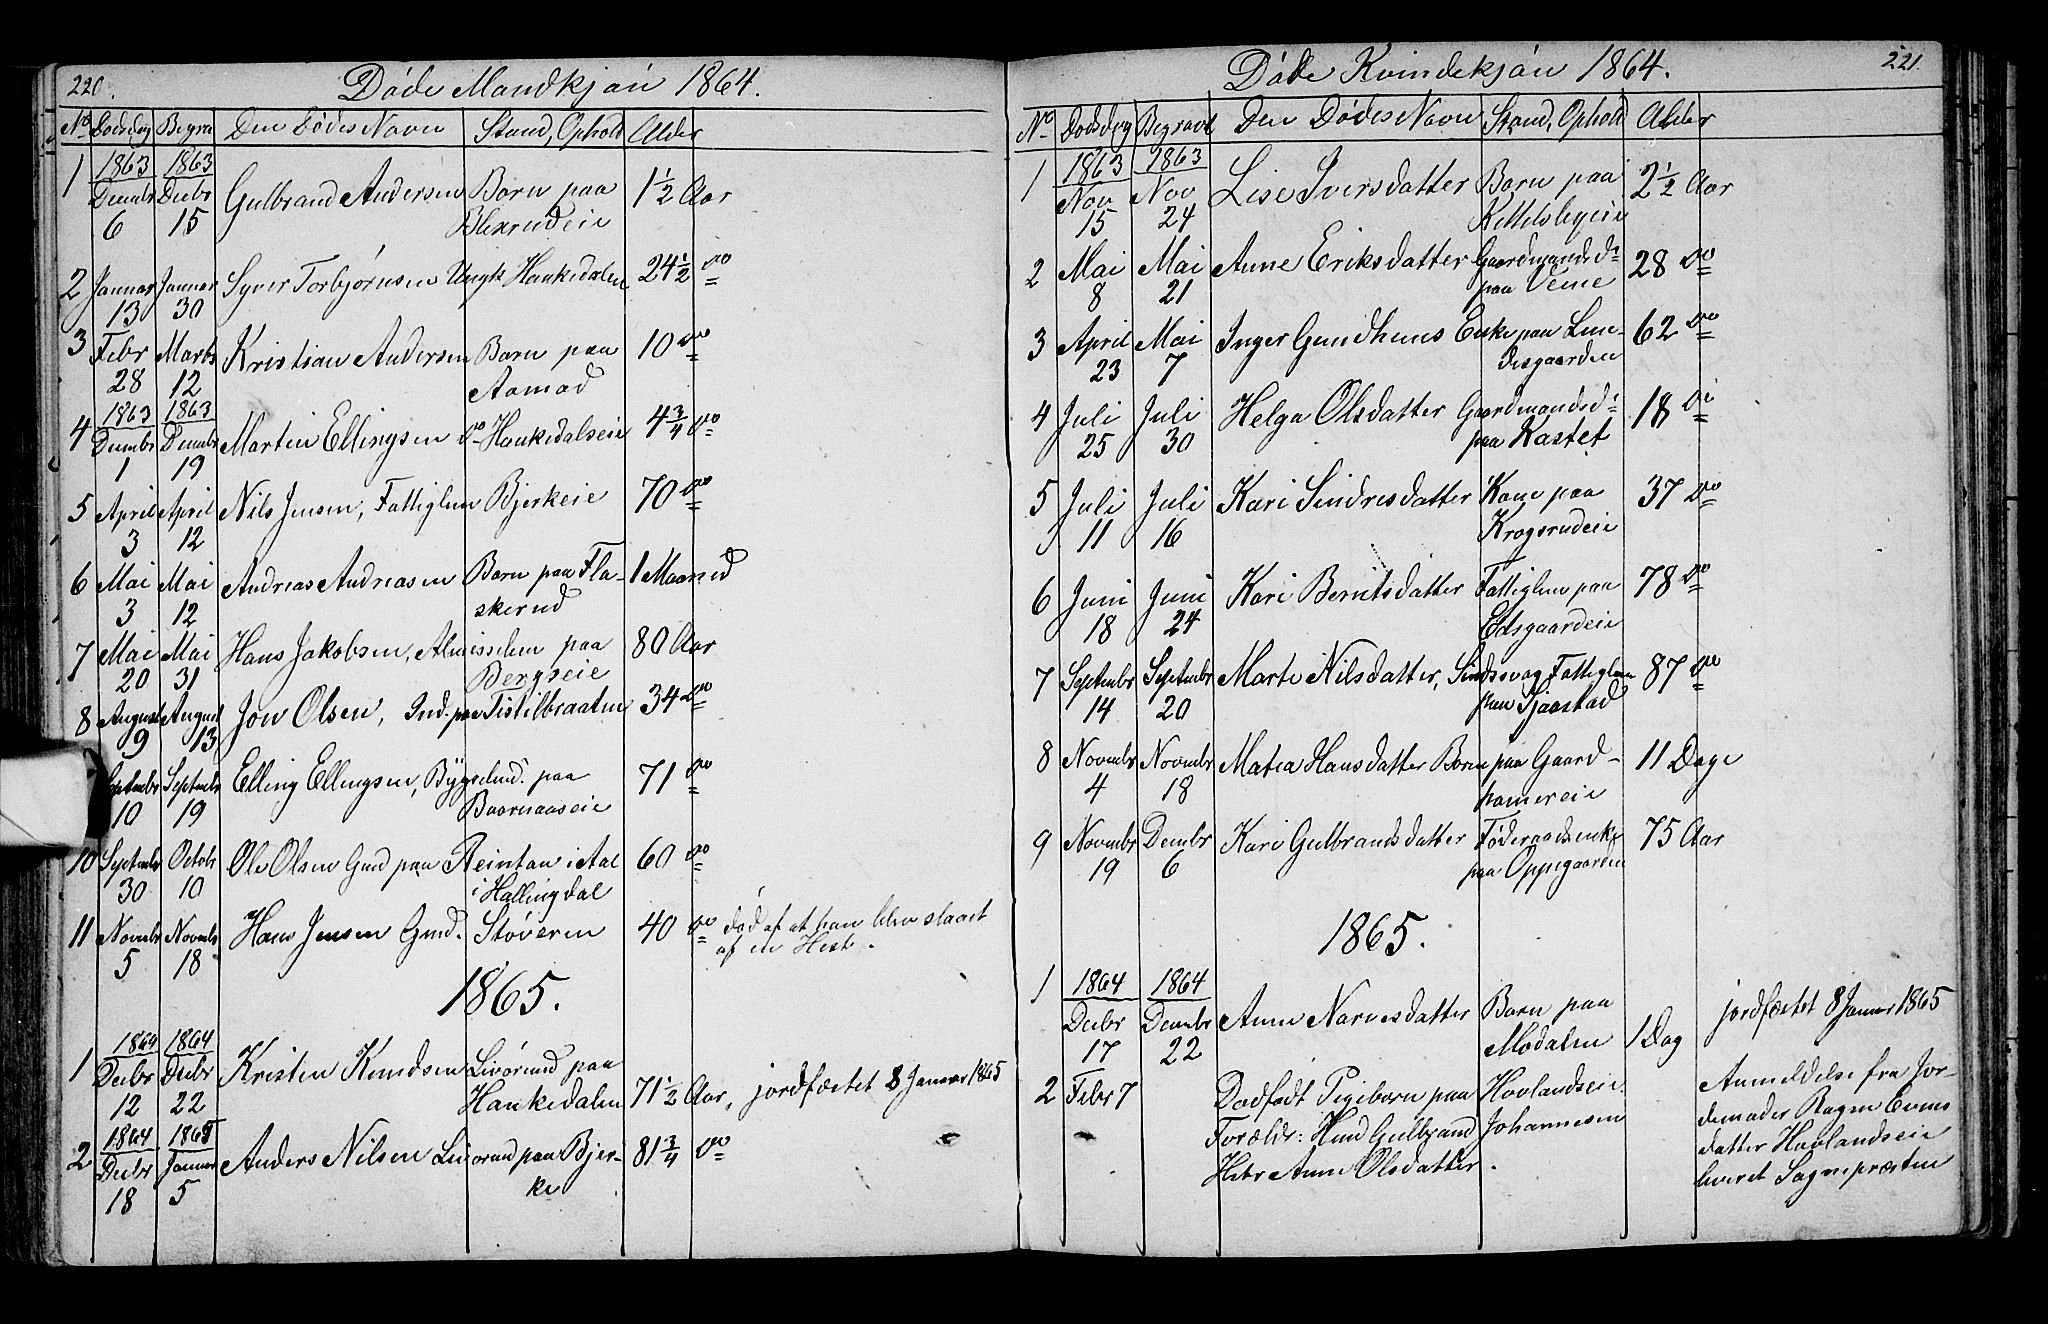 220.
Døde Mandkjøn 1864.
No Dødsdag Begra Den Dødes Navn Stand, Ophold Alder
1 1863 1863
Decembr Decbr Gulbrand Andersen Barn paa 1 1/2 Aar
6 15 Blexrudeie
2 Januar Januar Syver Torbjørnsen Ungk Haukedalen 24 1/2 do
13 30
3 Febr Marts Kristian Andersen Barn paa 10 do
28 12 Aamod
4 1863 1863
Decembr Decembr Martin Ellingsen do Haukedalseie 4 3/4 do
1 19
5 April April Nils Jensen, Fattiglem Bjerkeie 70 do
3 12
6 Mai Mai Andreas Andreasen Barn paa Fla- 1 Maaned
3 12 skerud
7 Mai Mai Hans Jakobsen, Almisselem paa 80 Aar
20 31 Bergseie
8 August August Jon Olsen, Ind. paa Tistilbraaten 34 do
9 13
Septembr Septembr Elling Ellingsen, Bygselmd. paa 71 do
10 19 Baarnaaseie
10 Septembr Octobr Ole Olsen Gmd paa Reintan i Aal 60 do
30 10 i Hallingdal
11 Novmbr Novmbr Hans Jensen Gmd. Støveren 40 do død af at han blev slaaet
5 18 af en Hest.
1865.
1 1864 1864
Decbr Decbr Kristen Knudsen Livørmd paa
12 22 Haukedalen 71 1/2 Aar, jordfæstet 8 Januar 1865
2 1864 1865
Decbr Januar Anders Nilsen Livørmd paa Bjer- 81 3/4 do
18 5 ke
221.
Døde Kvindekjøn 1864.
No Dødsdag Begravd Den Dødes Navn Stand, Ophold Alder
1 1863 1863
Nov Nov Lise Iversdatter Barn paa 2 1/2 Aar
15 24 Kittelsbyeie
2 Mai Mai Anne Eriksdatter Gaardmandsdr 28 do
8 21 paa Veme
3 April Mai Inger Gundhuus Enke paa Lun- 62 do
23 7 desgaarden
4 Juli Juli Helga Olsdatter Gaardmandsdr 18 do
25 30 paa Kastet
5 Juli Juli Kari Sindresdatter Kone paa 37 do
11 16 Krogsrudeie
6 Juni Juni Kari Berntsdatter Fattiglem paa 78 do
18 24 Edsgaardeie
7 Septembr Septembr Marte Nilsdatter, Sindssvag Fattiglem 87 do
14 20 paa Sjaastad
8 Novmbr Novmbr Matea Hansdatter Barn paa Gaard- 11 Dage
4 18 hamereie
9 Novmbr Decmbr Kari Gulbrandsdatter Føderaadsenke 75 Aar
19 6 paa Oppegaarden
1865.
1 1864 1864
Decbr Decembr Anne Narvesdatter Barn paa jordfæstet 8 Januar 1865
17 22 Modalen 1 Dag
2 Febr 7 Dødfødt Pigebarn paa Hovlandseie Anmeldelse fra Jor-
Forældr: Hmd Gulbrand Johannesen demoder Ragen Evens
Htr Anne Olsdatter. datter Hovlandseie
leveret Sognepræsten